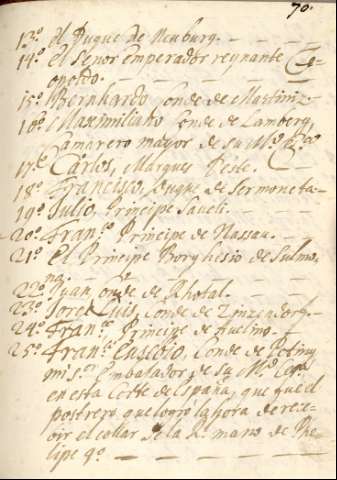 70.
13.º El Duque de Neuburg.
14.º el Señor emperador reynante Leo-
poldo.
15.º Bernhardo Conde de Martiniz
16.º Maximiliano Conde de Lamberg,
Camarero mayor de su Mᵈ Cesª
17.º Carlos, Marques d'Este.
18.º Francisco, Duque de Sermoneta.
19.º Julio, Principe Saveli.
20.º Franᶜº Principe de Nassau.
21.º El Principe Borghesio de Sulmo-
na.
22.º Juan Conde de Rhotal.
23.º Jorge Luis, Conde de Zinzendorf.
24.º Franᶜº Principe de Avelino.
25.º Franᶜº Eusebio, Conde de Peting
mi sºr Embaxador de su Mᵈ Cesª
en esta Corte de España, que fue el
postrero, que logro la hora de rece-
bir el collar de la Rˡ mano de Phe-
lipe 4º